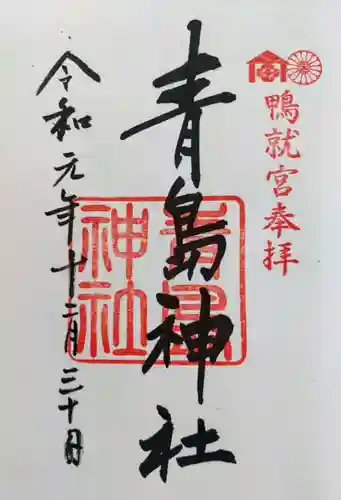 鴨就宮奉拝
青島神社
青島神社
令和元年十二月三十日